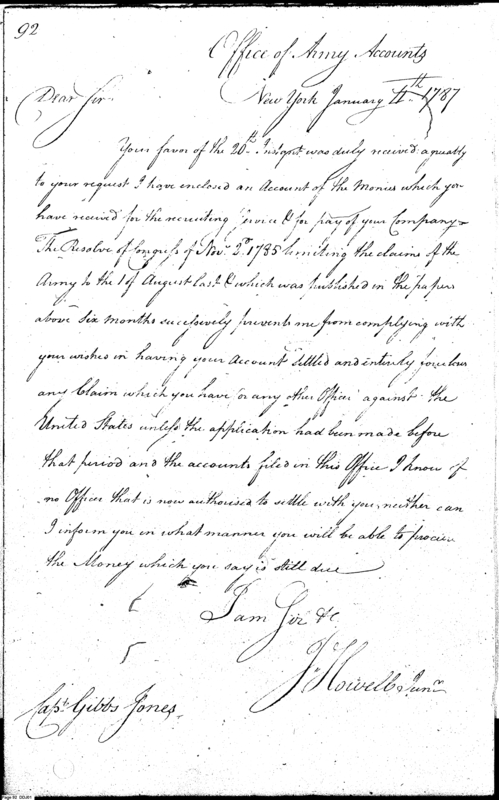 92
Office of Army Accounts
New York January 4th 1787
Dear Sir
Your favor of the 20th Instant was duly received agreeably
to your request I have enclosed an Account of the Monies which you
have received for the recruiting service & for pay of your Company
The Resolve of Congress of Novr. 2d 1785 limiting the claims of the
Army to the 1st of August last & which was published in the papers
above six months successively prevents me from complying with
your wishes in having your Account settled and entirely
any Claim which you have or any other Officer against the
United States unless the application had been made before
that period and the accounts filed in this Office I know of
no Officer that is now authorised to settle with you, neither can
I inform you in what manner you will be able to procure
the Money which you say is still due
I am Sir &c
Jo Howell Junr
Capt. Gibbs Jones